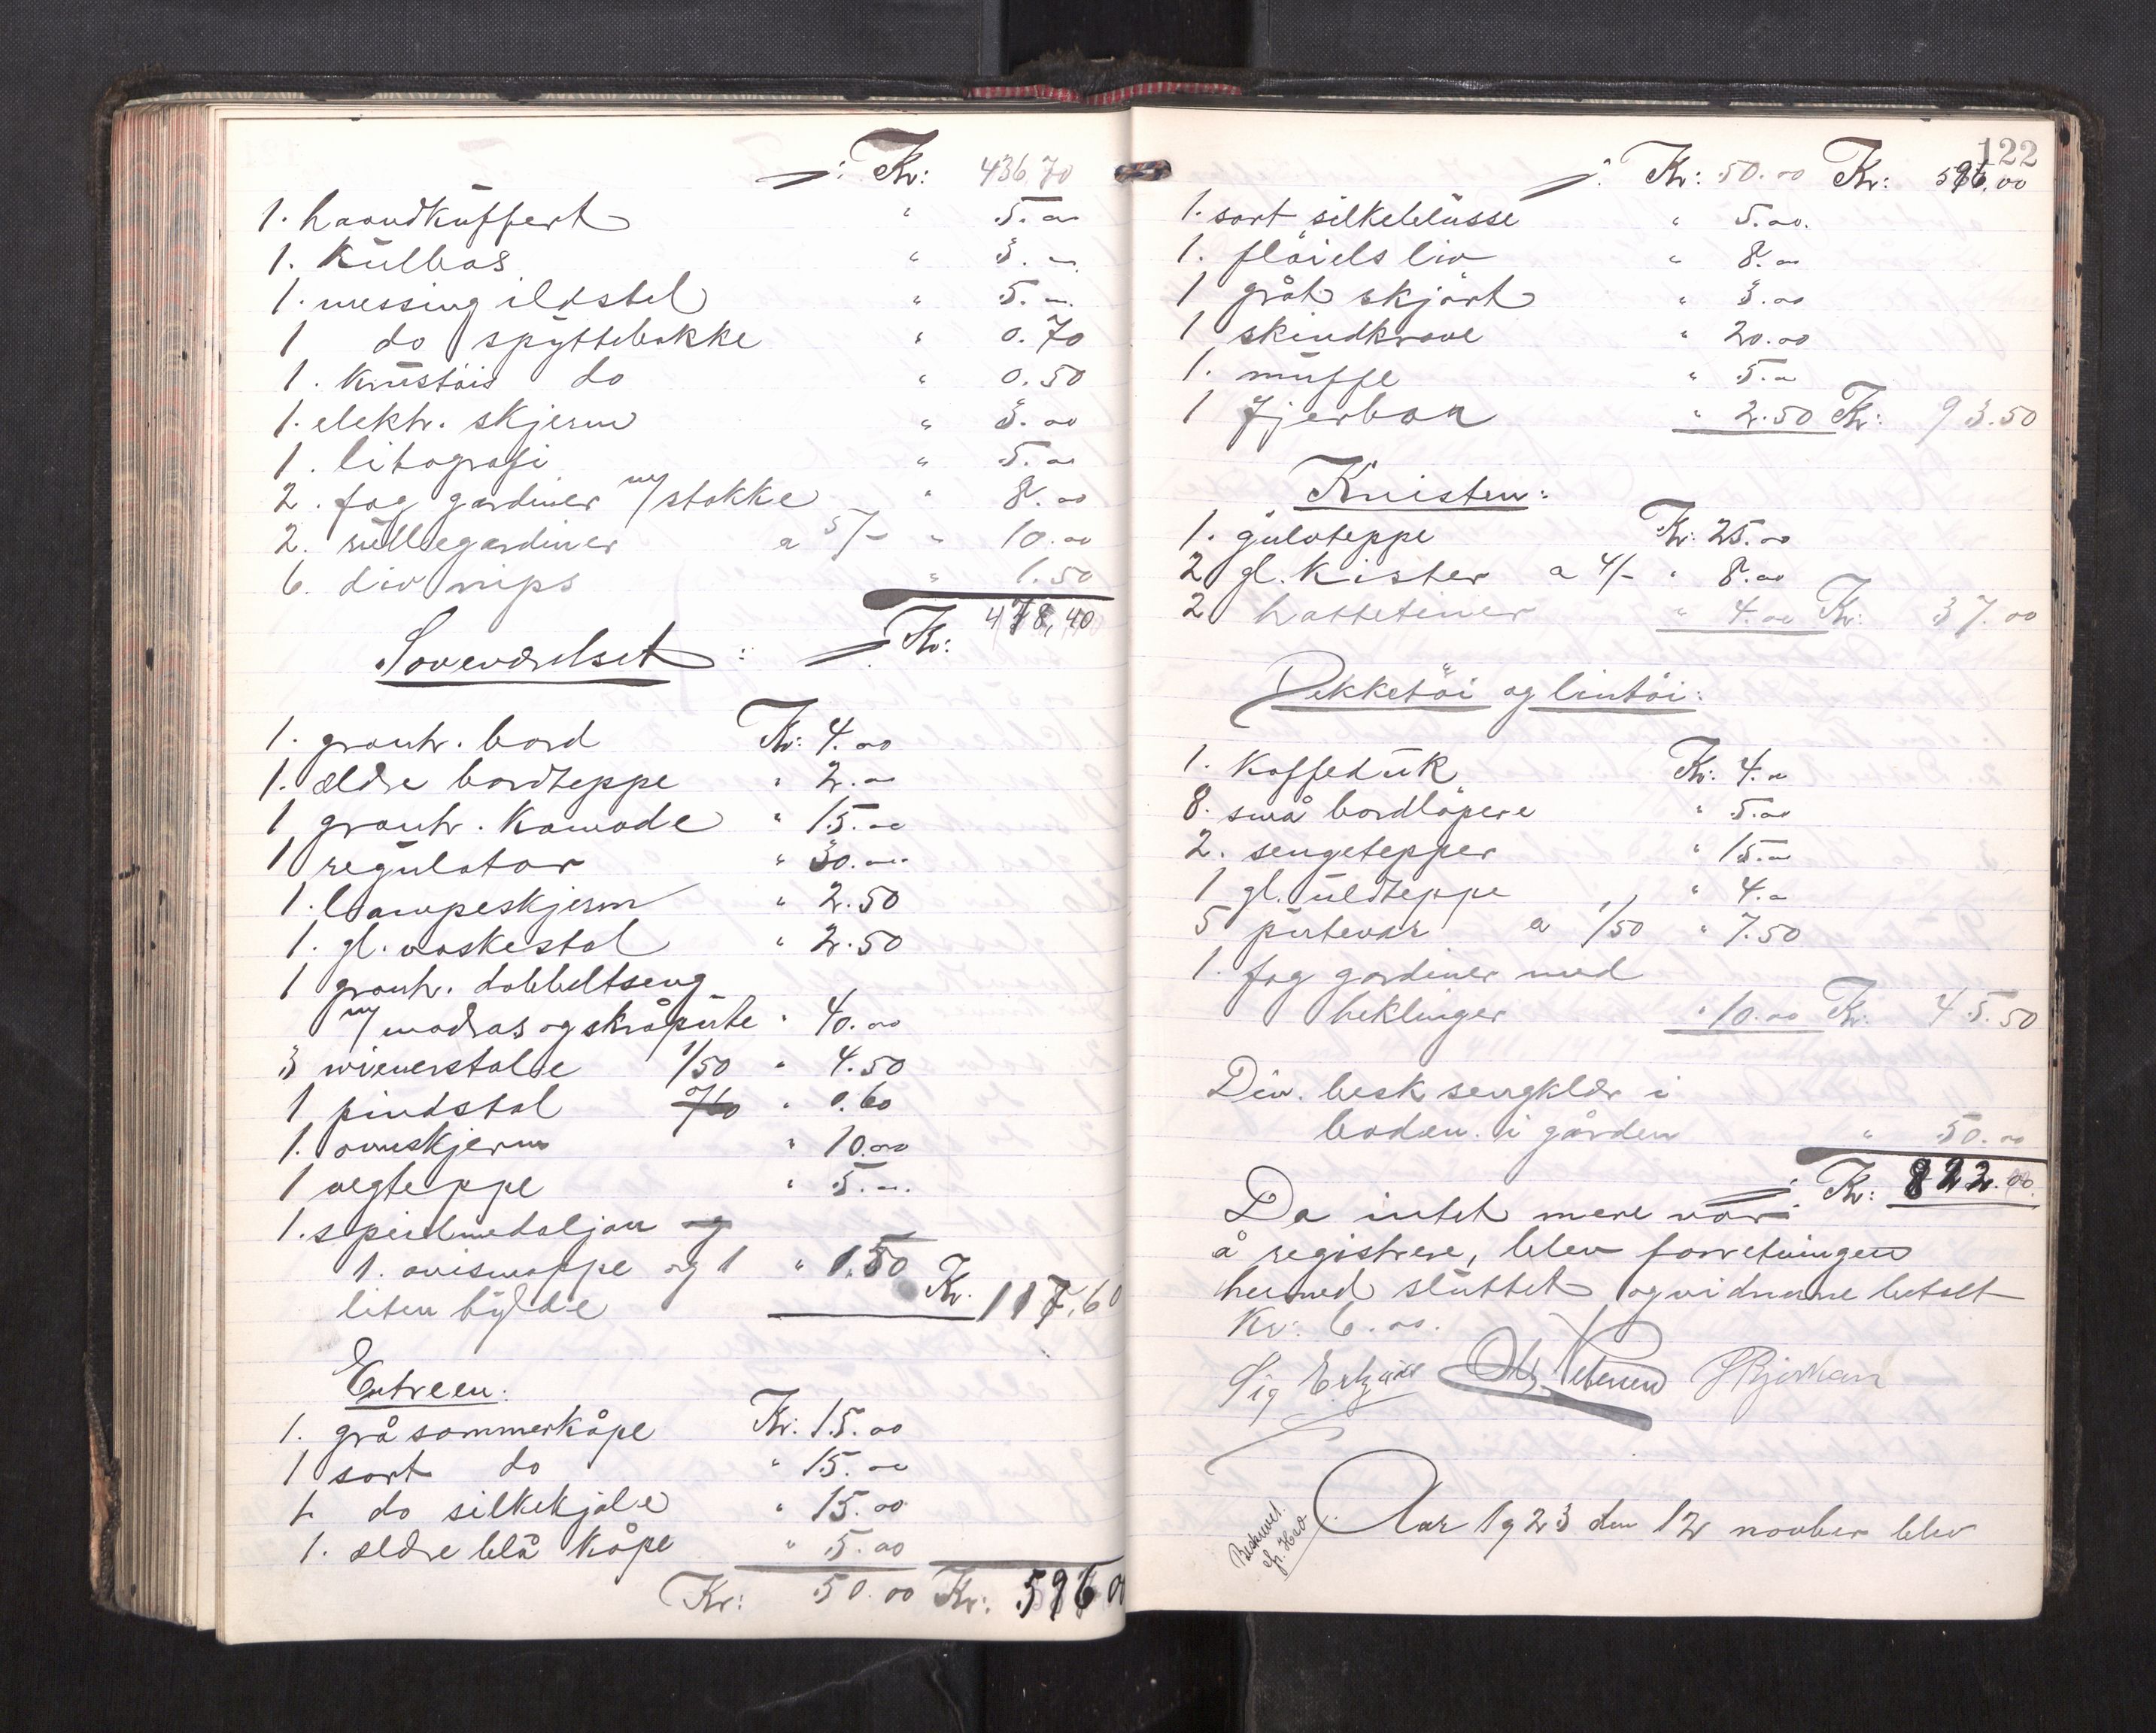 : Kr: 436,70
1. haandkuffert " 5.00
1. Kulbas " 3.00
1. messing ildstel " 5.00
1 do spyttebakke " 0.70
1. Krustöis do " 0.50
1. elektr. skjerm " 3.00
1. litografi " 5.00
2. fag gardiner m/stokke " 8.00
2. rullegardiner a 5/- " 10.00
6. div nips " 1.50
Soveværelset: : Kr: 478,40
1. granh. bord Kr: 4.00
1. ældre bordteppe " 2.00
1 granh. Komode " 15.00
1 regulator " 30.00
1. lampeskjerm " 2.50
1. gl. vaskestol " 2.50
1 granh. dobbeltseng
m/ madras og skråpute " 40.00
3 wienerstole 1/50 " 4.50
1 pindstol 0/60 " 0.60
1. ovnskjerm " 10.00
1 vegteppe " 5.00
1. speilmedaljon og
1. avismappe og 1 " 1.50
liten hylde Kr. 117,60
Entreen:
1. grå sommerkåpe Kr: 15.00
1 sort do " 15.00
1 do silkekjole " 15.00
1. ældre blå Kåpe " 5.00
Kr: 50.00 Kr: 596 00
122
: Kr: 50.00 Kr: 596,00
1. sort silkebluse " 5.00.
1. flöiels liv " 8.00
1 gråt skjört " 3.00
1 skindkrave " 20.00
1. muffe " 5.00
1 Fjerboa " 2.50 Kr: 93.50
Kvisten:
1. gulvteppe Kr. 25.00
2 gl. Kister a 4/- " 8.00
2 hatteteiner " 4.00 Kr: 37.00
Dekketöi og lintöi:
1. Kaffeduk Kr: 4.00
8. små bordlöpere " 5.00
2. sengetepper " 15.00
1 gl. uldteppe " 4.00
5 putevar a 1/50 " 7.50
1. fag gardiner med
heklinger " 10.00 Kr: 45.50
Div. besk sengklær i
boden i gården " 50.00
: Kr: 822.00.
Da intet mere var
å registrere, blev forretningen
hermed sluttet og vidnerne betalt
Kr: 6.00.
Sig Petersen
Aar 1923 den 12 novber blev